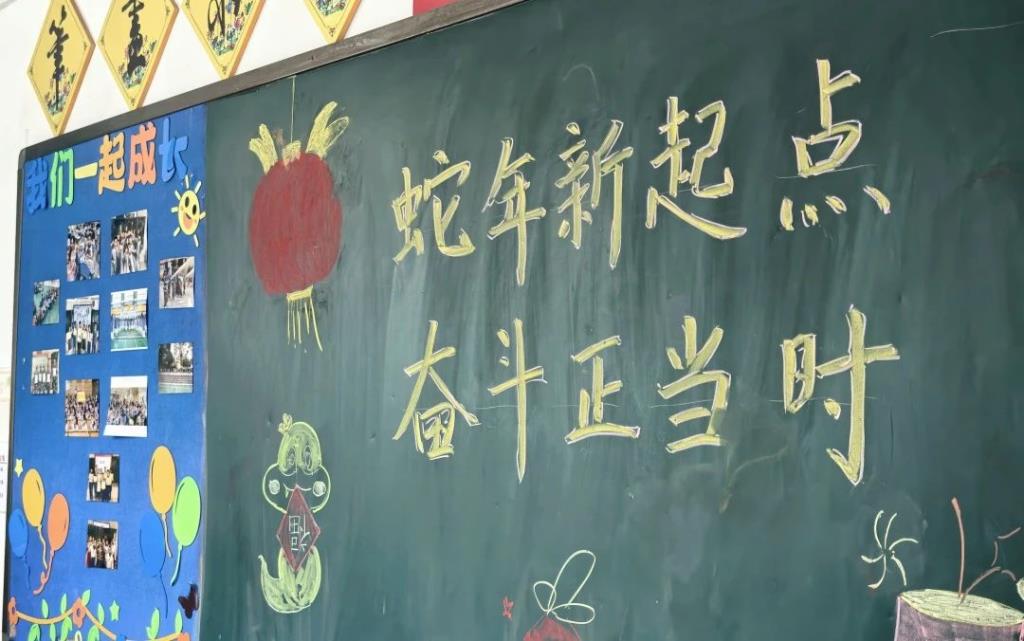 我们一起成长
蛇年新起点
奋斗正当时
福